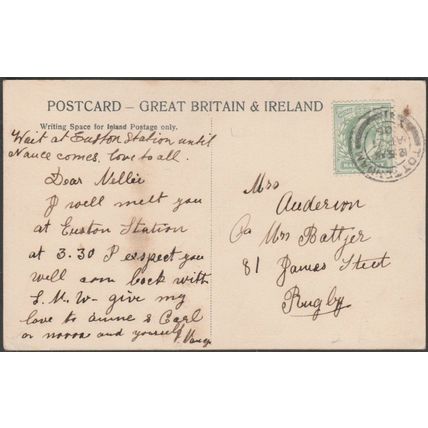 POSTCARD – GREAT BRITAIN & IRELAND
Writing Space for Inland Postage only.
Wait at Euston Station until
Nance comes, love to all.
Dear Nellie
I well meet you
at Euston Station
at 3.30 P espect you
well com back with
L.M.W- give my
love to anine & Carl
or norra and yourself
Mrs
Anderson
C/o Mrs Battger
81 James Street
Rugby
TOTTENHAM